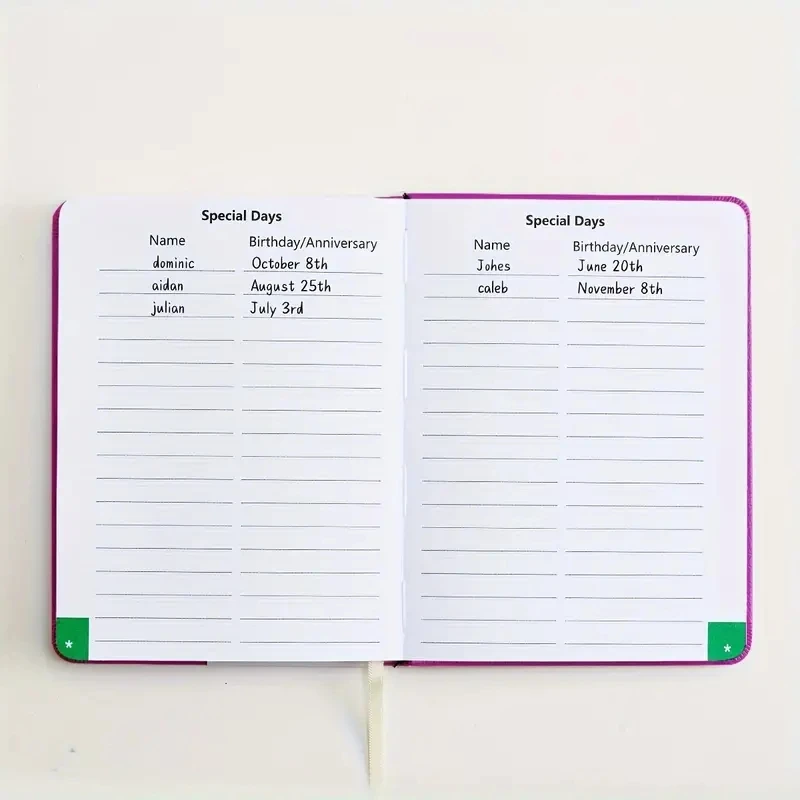 Special Days
Name Birthday/Anniversary
dominic October 8th
aidan August 25th
julian July 3rd
*
Special Days
Name Birthday/Anniversary
Johes June 20th
caleb November 8th
*